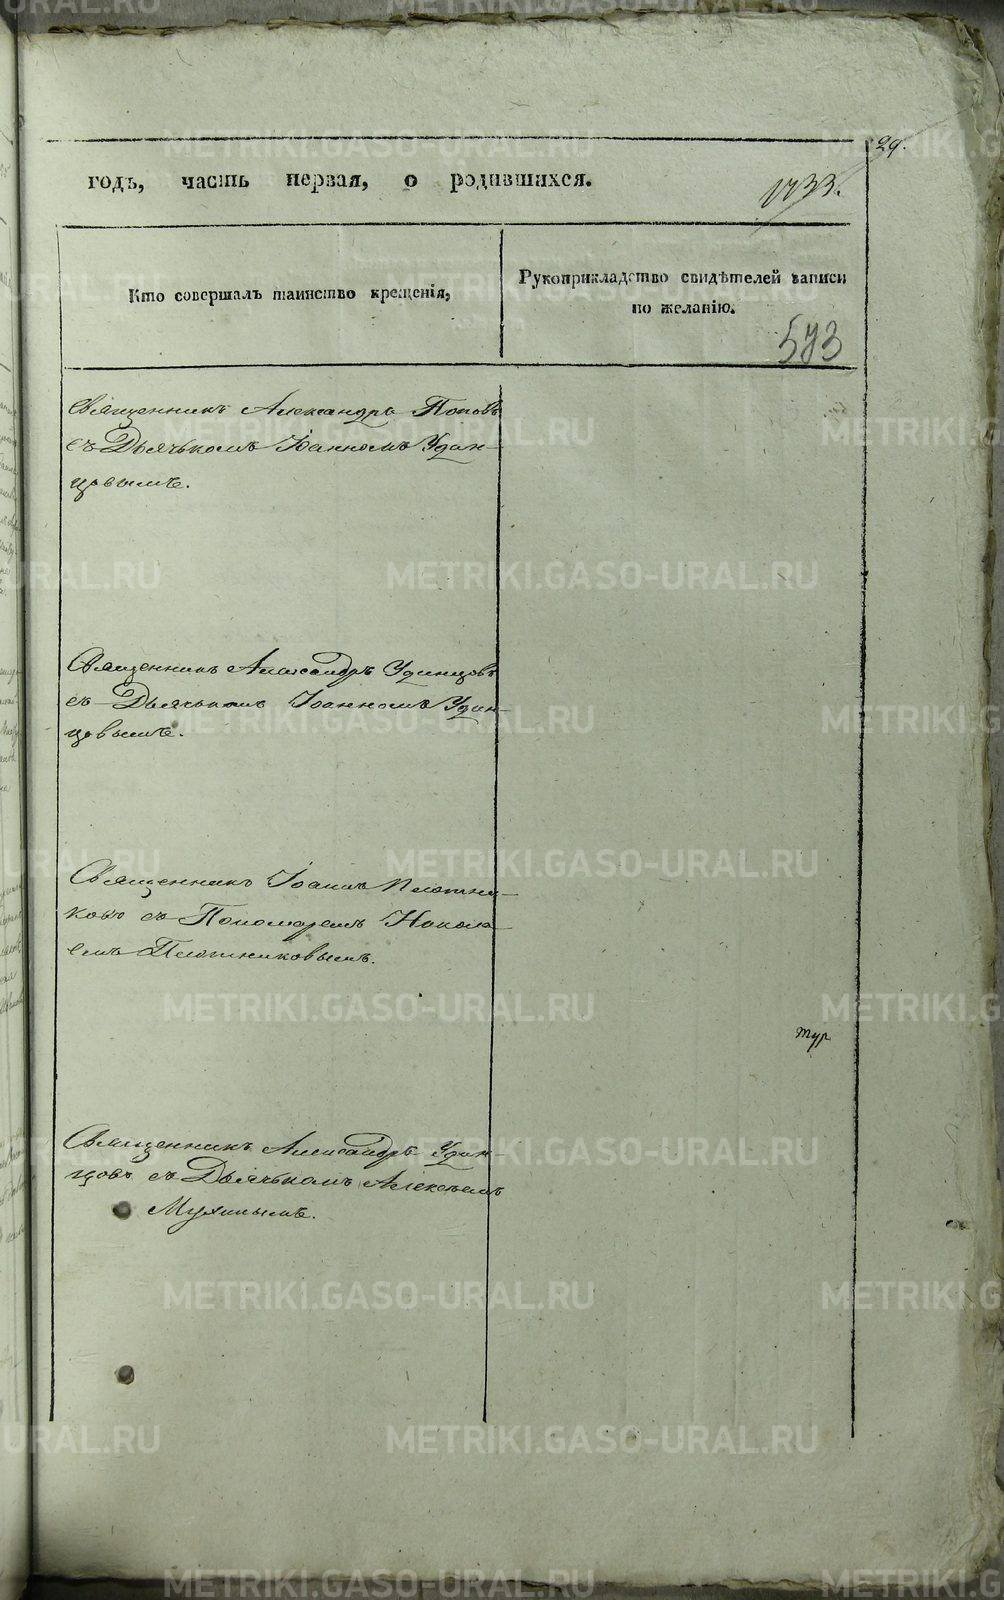 29.
годъ, часть первая, о родившихся.
1733.
Кто совершалъ таинство крещенія,
Рукоприкладство свидѣтелей записи
по желанію.
573
Священникъ Александръ Поповъ
съ Дьячькомъ Іоанномъ Удин-
цовымъ.
Священникъ Александръ Удинцовъ
съ Дьячькомъ Іоанномъ Удин-
цовымъ.
Священникъ Іоаннъ Плотни-
ковъ съ Пономаремъ Никола-
емъ Плотниковымъ.
тур
Священникъ Александръ Удин-
цовъ съ Дьячькомъ Алексѣемъ
Мухинымъ.
METRIKI.GASO-URAL.RU